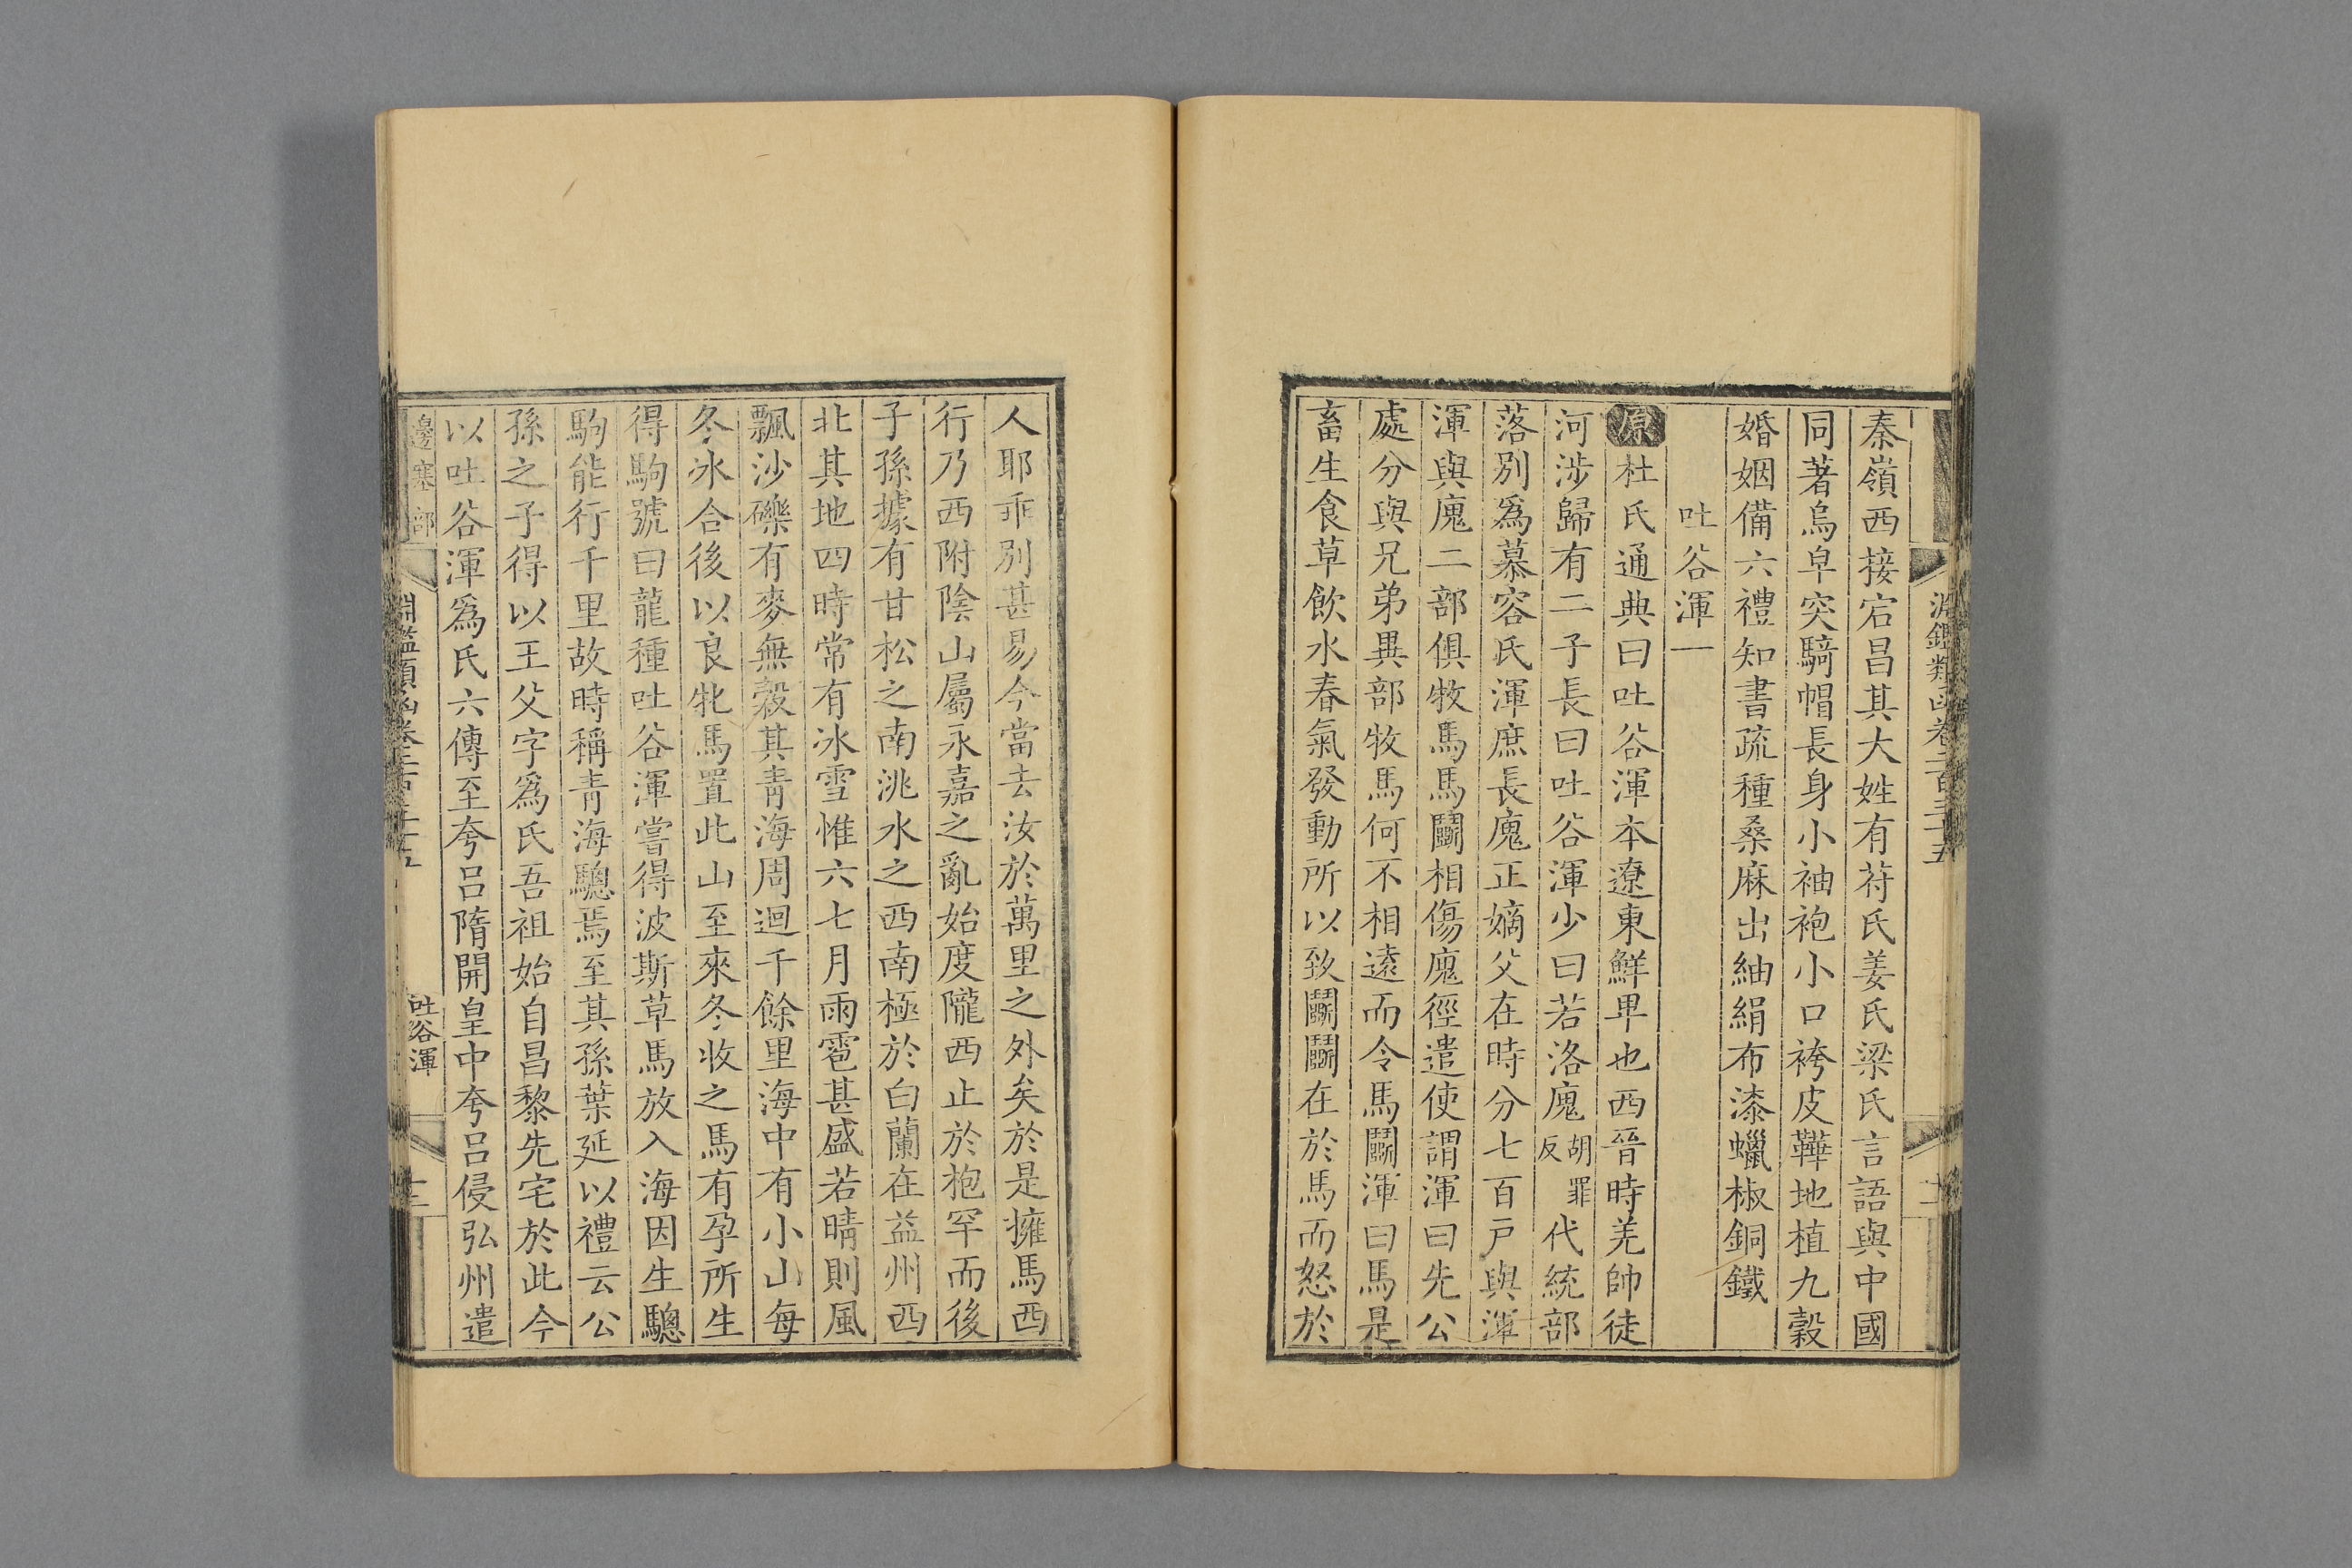 淵鑑類函卷二百三十五
秦嶺西接宕昌其大姓有苻氏姜氏梁氏言語與中國
同著烏皁突騎帽長身小袖袍小口袴皮鞾地植九穀
婚姻備六禮知書疏種桑麻出紬絹布漆蠟椒銅鐵
吐谷渾一
原杜氏通典曰吐谷渾本遼東鮮卑也西晉時羌帥徒
河涉歸有二子長曰吐谷渾少曰若洛廆胡罪反代統部
落別爲慕容氏渾庶長廆正嫡父在時分七百戸與渾
渾與廆二部俱牧馬馬鬭相傷廆徑遣使謂渾曰先公
處分與兄弟異部牧馬何不相遠而令馬鬭渾曰馬是
畜生食草飲水春氣發動所以致鬭鬭在於馬而怒於
人耶乖別甚易今當去汝於萬里之外矣於是擁馬西
行乃西附陰山屬永嘉之亂始度隴西止於枹罕而後
子孫據有甘松之南洮水之西南極於白蘭在益州西
北其地四時常有冰雪惟六七月雨雹甚盛若晴則風
飄沙礫有麥無穀其青海周迴千餘里海中有小山每
冬冰合後以良牝馬置此山至來冬收之馬有孕所生
得駒號曰龍種吐谷渾嘗得波斯草馬放入海因生驄
駒能行千里故時稱青海驄焉至其孫葉延以禮云公
孫之子得以王父字爲氏吾祖始自昌黎先宅於此今
以吐谷渾爲氏六傳至夸呂隋開皇中夸呂侵弘州遣
邊塞部 淵鑑類函卷二百三十五 吐谷渾 十三